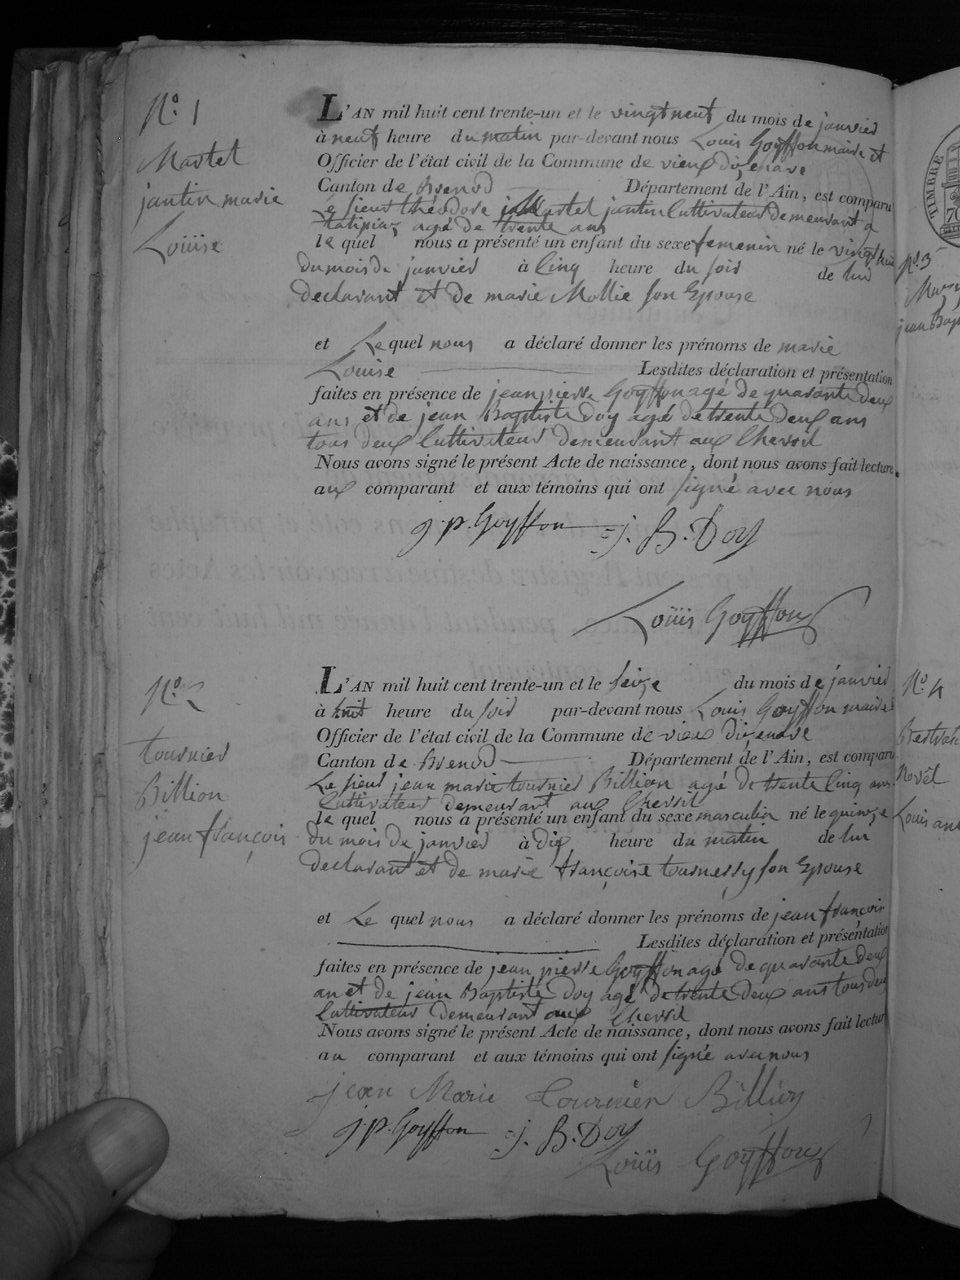 N.º 1
Martel
jantin marie
Loüise
L'AN mil huit cent trente-un et le vingt neuf du mois de janvier
à neuf heure du matin par-devant nous Louis Goyffon maire et
Officier de l'état civil de la Commune de vieux dizenave
Canton de Brenod Département de l'Ain, est comparu
Le sieur théodore martel jantin Cultivateur demeurant a
agé de trente ans
le quel nous a présenté un enfant du sexe femenin né le vingt huit
du mois de janvier à Cinq heure du soir de lui
declarant et de marie Mollie son Epouse
et Le quel nous a déclaré donner les prénoms de marie
Louise Lesdites déclaration et présentation
faites en présence de jean pierre Goyffon agé de quarante deux
ans et de jean Baptiste Doy agé de trente deux ans
tous deux Cultivateur demeurant aux Chevril
Nous avons signé le présent Acte de naissance, dont nous avons fait lecture
aux comparant et aux témoins qui ont signé avec nous
j. p. Goyffon j. B. Doy
Loüis Goyffon
N.º 2
tournier
Billion
jean françois
L'AN mil huit cent trente-un et le seize du mois de janvier
à huit heure du soir par-devant nous Louis Goyffon maire
Officier de l'état civil de la Commune de vieux dizenave
Canton de Brenod Département de l'Ain, est comparu
Le sieur jean marie tournier Billion agé de trente Cinq ans
Cultivateur demeurant aux Chevril
le quel nous a présenté un enfant du sexe masculin né le quinze
du mois de janvier à dix heure du matin de lui
declarant et de marie françoise tournessy son Epouse
et Le quel nous a déclaré donner les prénoms de jean françois
Lesdites déclaration et présentation
faites en présence de jean pierre Goyffon agé de quarante deux
an et de jean Baptiste Doy agé de trente deux ans tous deux
Cultivateur demeurant aux Chevril
Nous avons signé le présent Acte de naissance, dont nous avons fait lecture
au comparant et aux témoins qui ont signé avec nous
jean Marie Tournier Billion
j p. Goyffon j. B. Doy
Loüis Goyffon
TIMBRE
N.º 3
jean Bap
N.º 4
Novêl
Louis